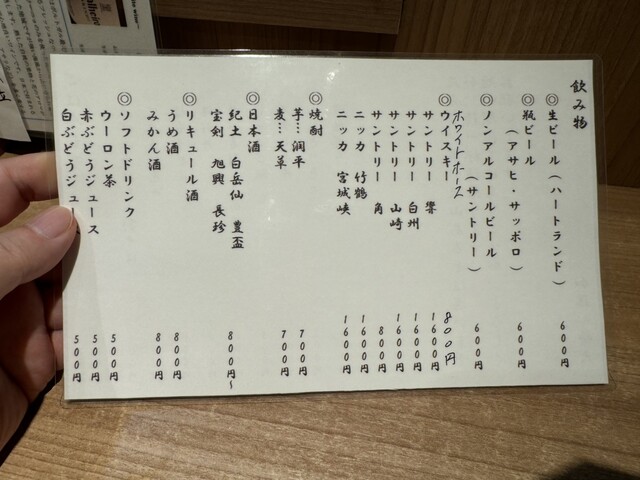 飲み物
◎生ビール（ハートランド） 600円
◎瓶ビール
（アサヒ・サッポロ） 600円
◎ノンアルコールビール
（サントリー） 600円
ホワイトホース 800円
◎ウイスキー
サントリー 響 1600円
サントリー 白州 1600円
サントリー 山崎 1600円
サントリー 角 800円
ニッカ 竹鶴 1600円
ニッカ 宮城峡 1600円
◎焼酎
芋…潤平 700円
麦…天草 700円
◎日本酒
紀土 白岳仙 豊盃 800円～
宝剣 旭興 長珍
◎リキュール酒
うめ酒 800円
みかん酒 800円
◎ソフトドリンク
ウーロン茶 500円
赤ぶどうジュース 500円
白ぶどうジュース 500円